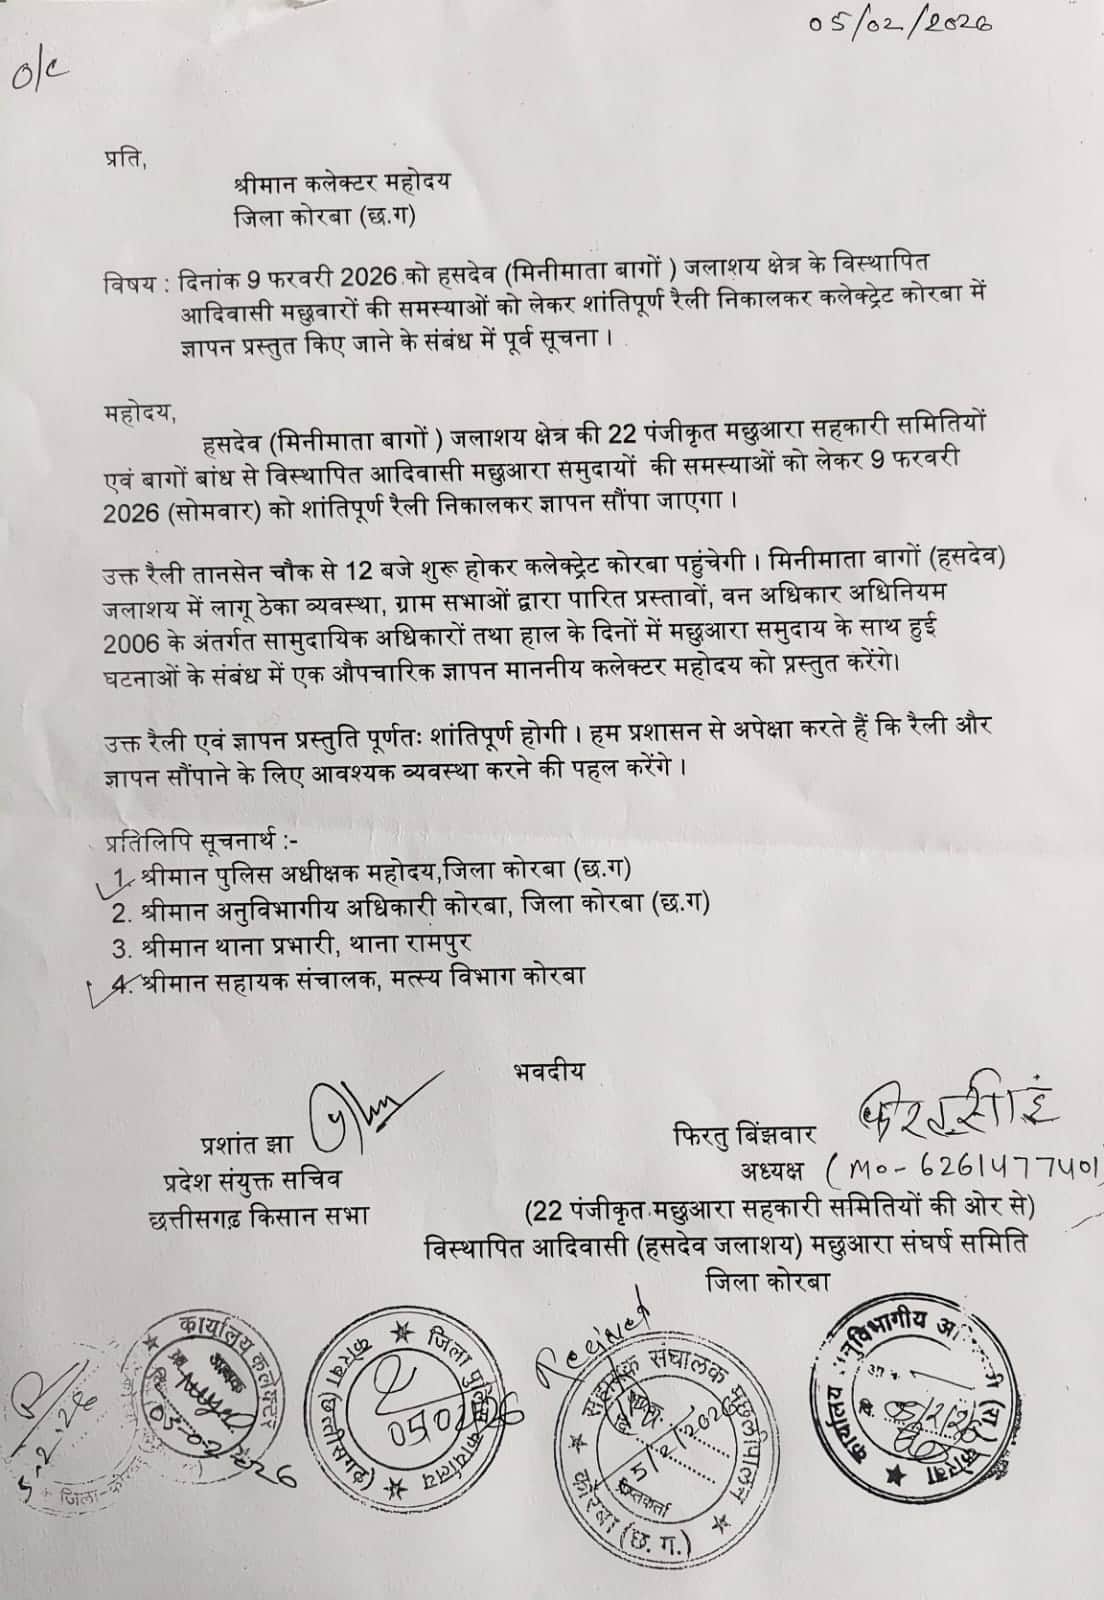 05/02/2026
O/C
प्रति,
श्रीमान कलेक्टर महोदय
जिला कोरबा (छ.ग)
विषय : दिनांक 9 फरवरी 2026 को हसदेव (मिनीमाता बागों ) जलाशय क्षेत्र के विस्थापित
आदिवासी मछुवारों की समस्याओं को लेकर शांतिपूर्ण रैली निकालकर कलेक्ट्रेट कोरबा में
ज्ञापन प्रस्तुत किए जाने के संबंध में पूर्व सूचना ।
महोदय,
हसदेव (मिनीमाता बागों ) जलाशय क्षेत्र की 22 पंजीकृत मछुआरा सहकारी समितियों
एवं बागों बांध से विस्थापित आदिवासी मछुआरा समुदायों की समस्याओं को लेकर 9 फरवरी
2026 (सोमवार) को शांतिपूर्ण रैली निकालकर ज्ञापन सौंपा जाएगा ।
उक्त रैली तानसेन चौक से 12 बजे शुरू होकर कलेक्ट्रेट कोरबा पहुंचेगी । मिनीमाता बागों (हसदेव)
जलाशय में लागू ठेका व्यवस्था, ग्राम सभाओं द्वारा पारित प्रस्तावों, वन अधिकार अधिनियम
2006 के अंतर्गत सामुदायिक अधिकारों तथा हाल के दिनों में मछुआरा समुदाय के साथ हुई
घटनाओं के संबंध में एक औपचारिक ज्ञापन माननीय कलेक्टर महोदय को प्रस्तुत करेंगे।
उक्त रैली एवं ज्ञापन प्रस्तुति पूर्णतः शांतिपूर्ण होगी । हम प्रशासन से अपेक्षा करते हैं कि रैली और
ज्ञापन सौंपाने के लिए आवश्यक व्यवस्था करने की पहल करेंगे ।
प्रतिलिपि सूचनार्थ :-
1. श्रीमान पुलिस अधीक्षक महोदय,जिला कोरबा (छ.ग)
2. श्रीमान अनुविभागीय अधिकारी कोरबा, जिला कोरबा (छ.ग)
3. श्रीमान थाना प्रभारी, थाना रामपुर
4. श्रीमान सहायक संचालक, मत्स्य विभाग कोरबा
भवदीय
प्रशांत झा
प्रदेश संयुक्त सचिव
छत्तीसगढ़ किसान सभा
फिरतु बिंझवार
अध्यक्ष (MO- 6261477401)
(22 पंजीकृत मछुआरा सहकारी समितियों की ओर से)
विस्थापित आदिवासी (हसदेव जलाशय) मछुआरा संघर्ष समिति
जिला कोरबा
कार्यालय कलेक्टर
आवक
05-02-2026
जिला-
5-2-26
जिला पुलिस कार्यालय
कोरबा (छत्तीसगढ़)
05/02/26
Received
सहायक संचालक मछलीपालन
5/2/2026
कोरबा (छ. ग.)
कार्यालय अनुविभागीय
(रा.) कोरबा